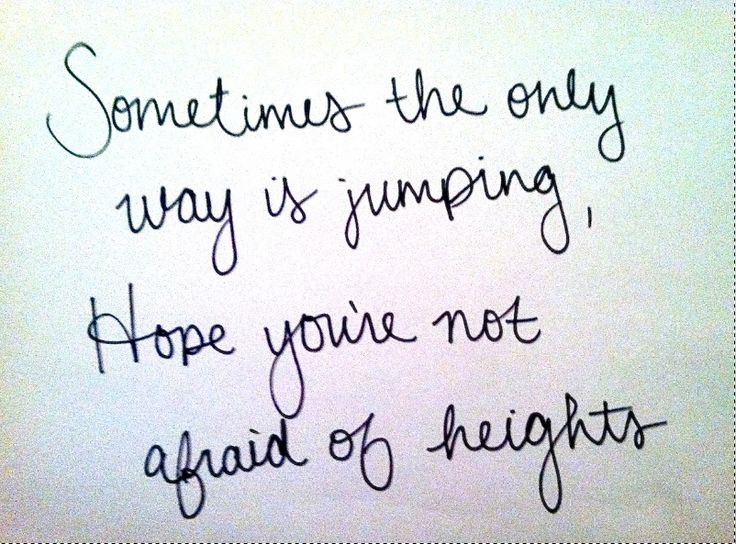 Sometimes the only
way is jumping,
Hope you're not
afraid of heights